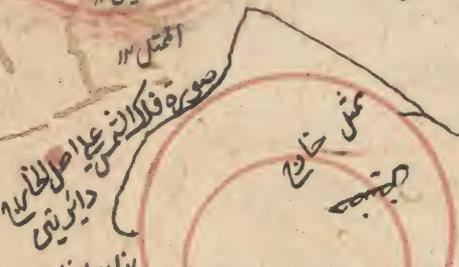 الممثل
صورة فلك الشمس علي اصل الخارج
دائرتي
ممثل
خارج